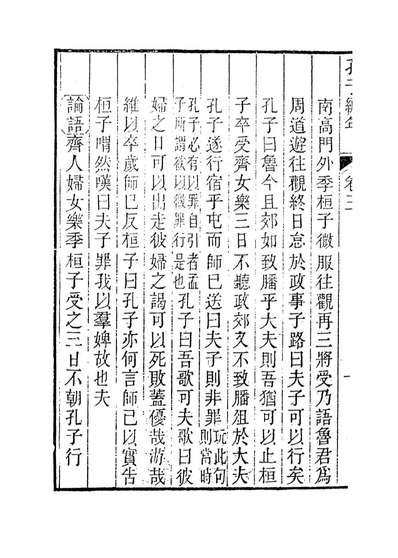 孔子編年 卷三
南高門外季桓子微服往觀再三將受乃語魯君爲
周道遊往觀終日怠於政事子路曰夫子可以行矣
孔子曰魯今且郊如致膰乎大夫則吾猶可以止桓
子卒受齊女樂三日不聽政郊又不致膰俎於大夫
孔子遂行宿乎屯而師已送曰夫子則非罪玩此句則當時
孔子必有以罪自引者孟子所謂欲以微罪行是也孔子曰吾歌可夫歌曰彼
婦之口可以出走彼婦之謁可以死敗蓋優哉游哉
維以卒歲師已反桓子曰孔子亦何言師已以實告
桓子喟然嘆曰夫子罪我以羣婢故也夫
論語齊人婦女樂季桓子受之三日不朝孔子行